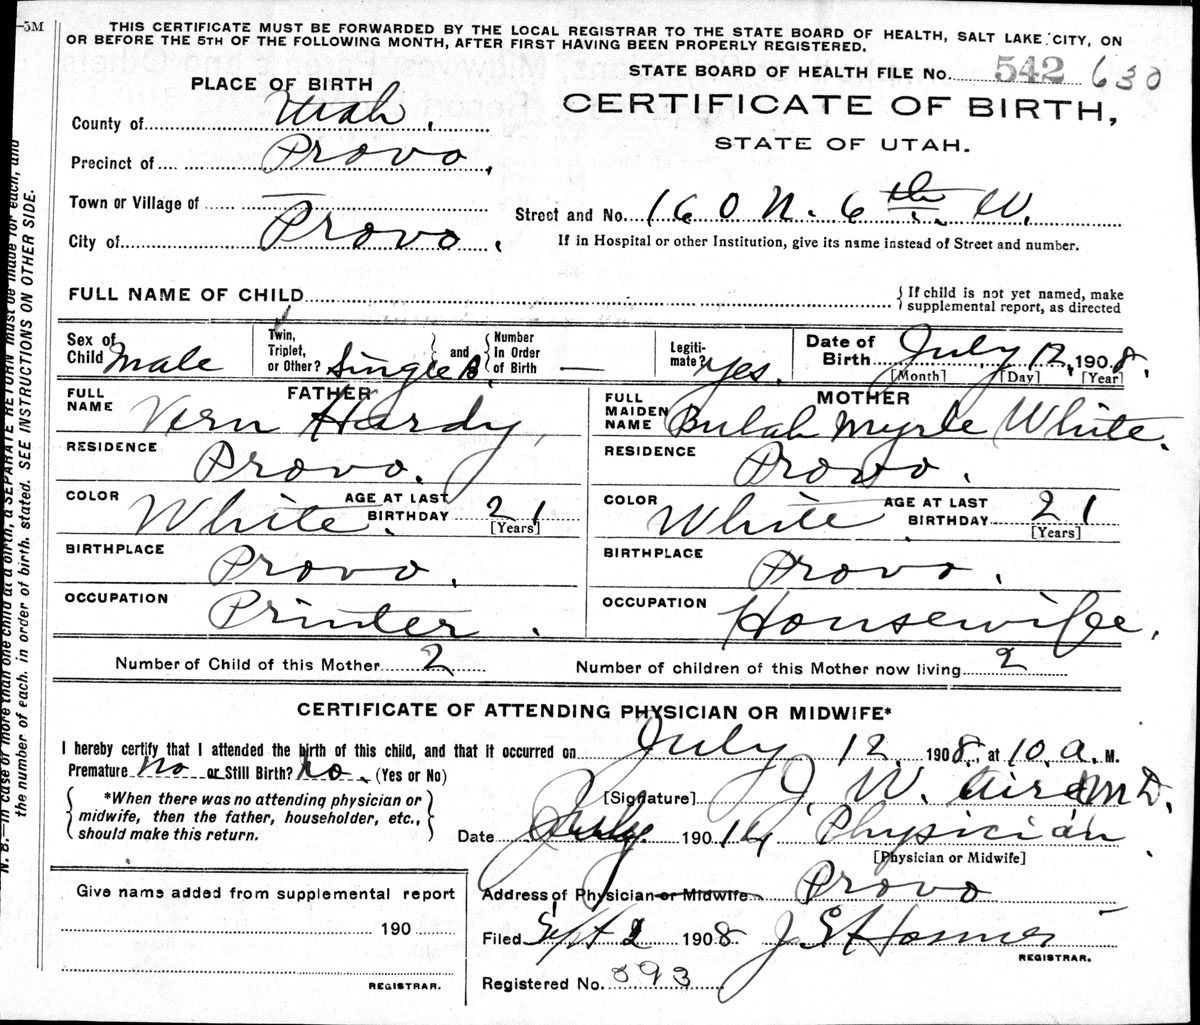 -5M
THIS CERTIFICATE MUST BE FORWARDED BY THE LOCAL REGISTRAR TO THE STATE BOARD OF HEALTH, SALT LAKE CITY, ON
OR BEFORE THE 5TH OF THE FOLLOWING MONTH, AFTER FIRST HAVING BEEN PROPERLY REGISTERED.
STATE BOARD OF HEALTH FILE No. 542 630
PLACE OF BIRTH
CERTIFICATE OF BIRTH,
STATE OF UTAH.
County of Utah.
Precinct of Provo,
Town or Village of —
Street and No. 160 N. 6th W.
City of Provo.
If in Hospital or other Institution, give its name instead of Street and number.
FULL NAME OF CHILD
{If child is not yet named, make
supplemental report, as directed
Sex of Child Male
Twin, Triplet, or Other? Single B
and
Number In Order of Birth —
Legiti-mate? Yes.
Date of Birth July 12, 1908.
[Month] [Day] [Year]
FATHER
FULL NAME Vern Hardy,
RESIDENCE Provo.
COLOR White. AGE AT LAST BIRTHDAY 21
[Years]
BIRTHPLACE Provo.
OCCUPATION Printer.
MOTHER
FULL MAIDEN NAME Bulah Myrle White.
RESIDENCE Provo.
COLOR White. AGE AT LAST BIRTHDAY 21
[Years]
BIRTHPLACE Provo.
OCCUPATION Housewife.
Number of Child of this Mother 2
Number of children of this Mother now living 2
CERTIFICATE OF ATTENDING PHYSICIAN OR MIDWIFE*
I hereby certify that I attended the birth of this child, and that it occurred on July 12, 1908, at 10. a. M.
Premature No or Still Birth? No. (Yes or No)
[Signature] J. W. Aird M D.
*When there was no attending physician or
midwife, then the father, householder, etc.,
should make this return.
Date July 190 14 Physician.
[Physician or Midwife]
Address of Physician or Midwife Provo
Give name added from supplemental report
190
REGISTRAR.
Filed Sept 2 1908 J E Homer
REGISTRAR.
Registered No. 393
N. B.—In case of more than one child at a birth, a SEPARATE RETURN must be made for each, and
the number of each, in order of birth, stated. SEE INSTRUCTIONS ON OTHER SIDE.